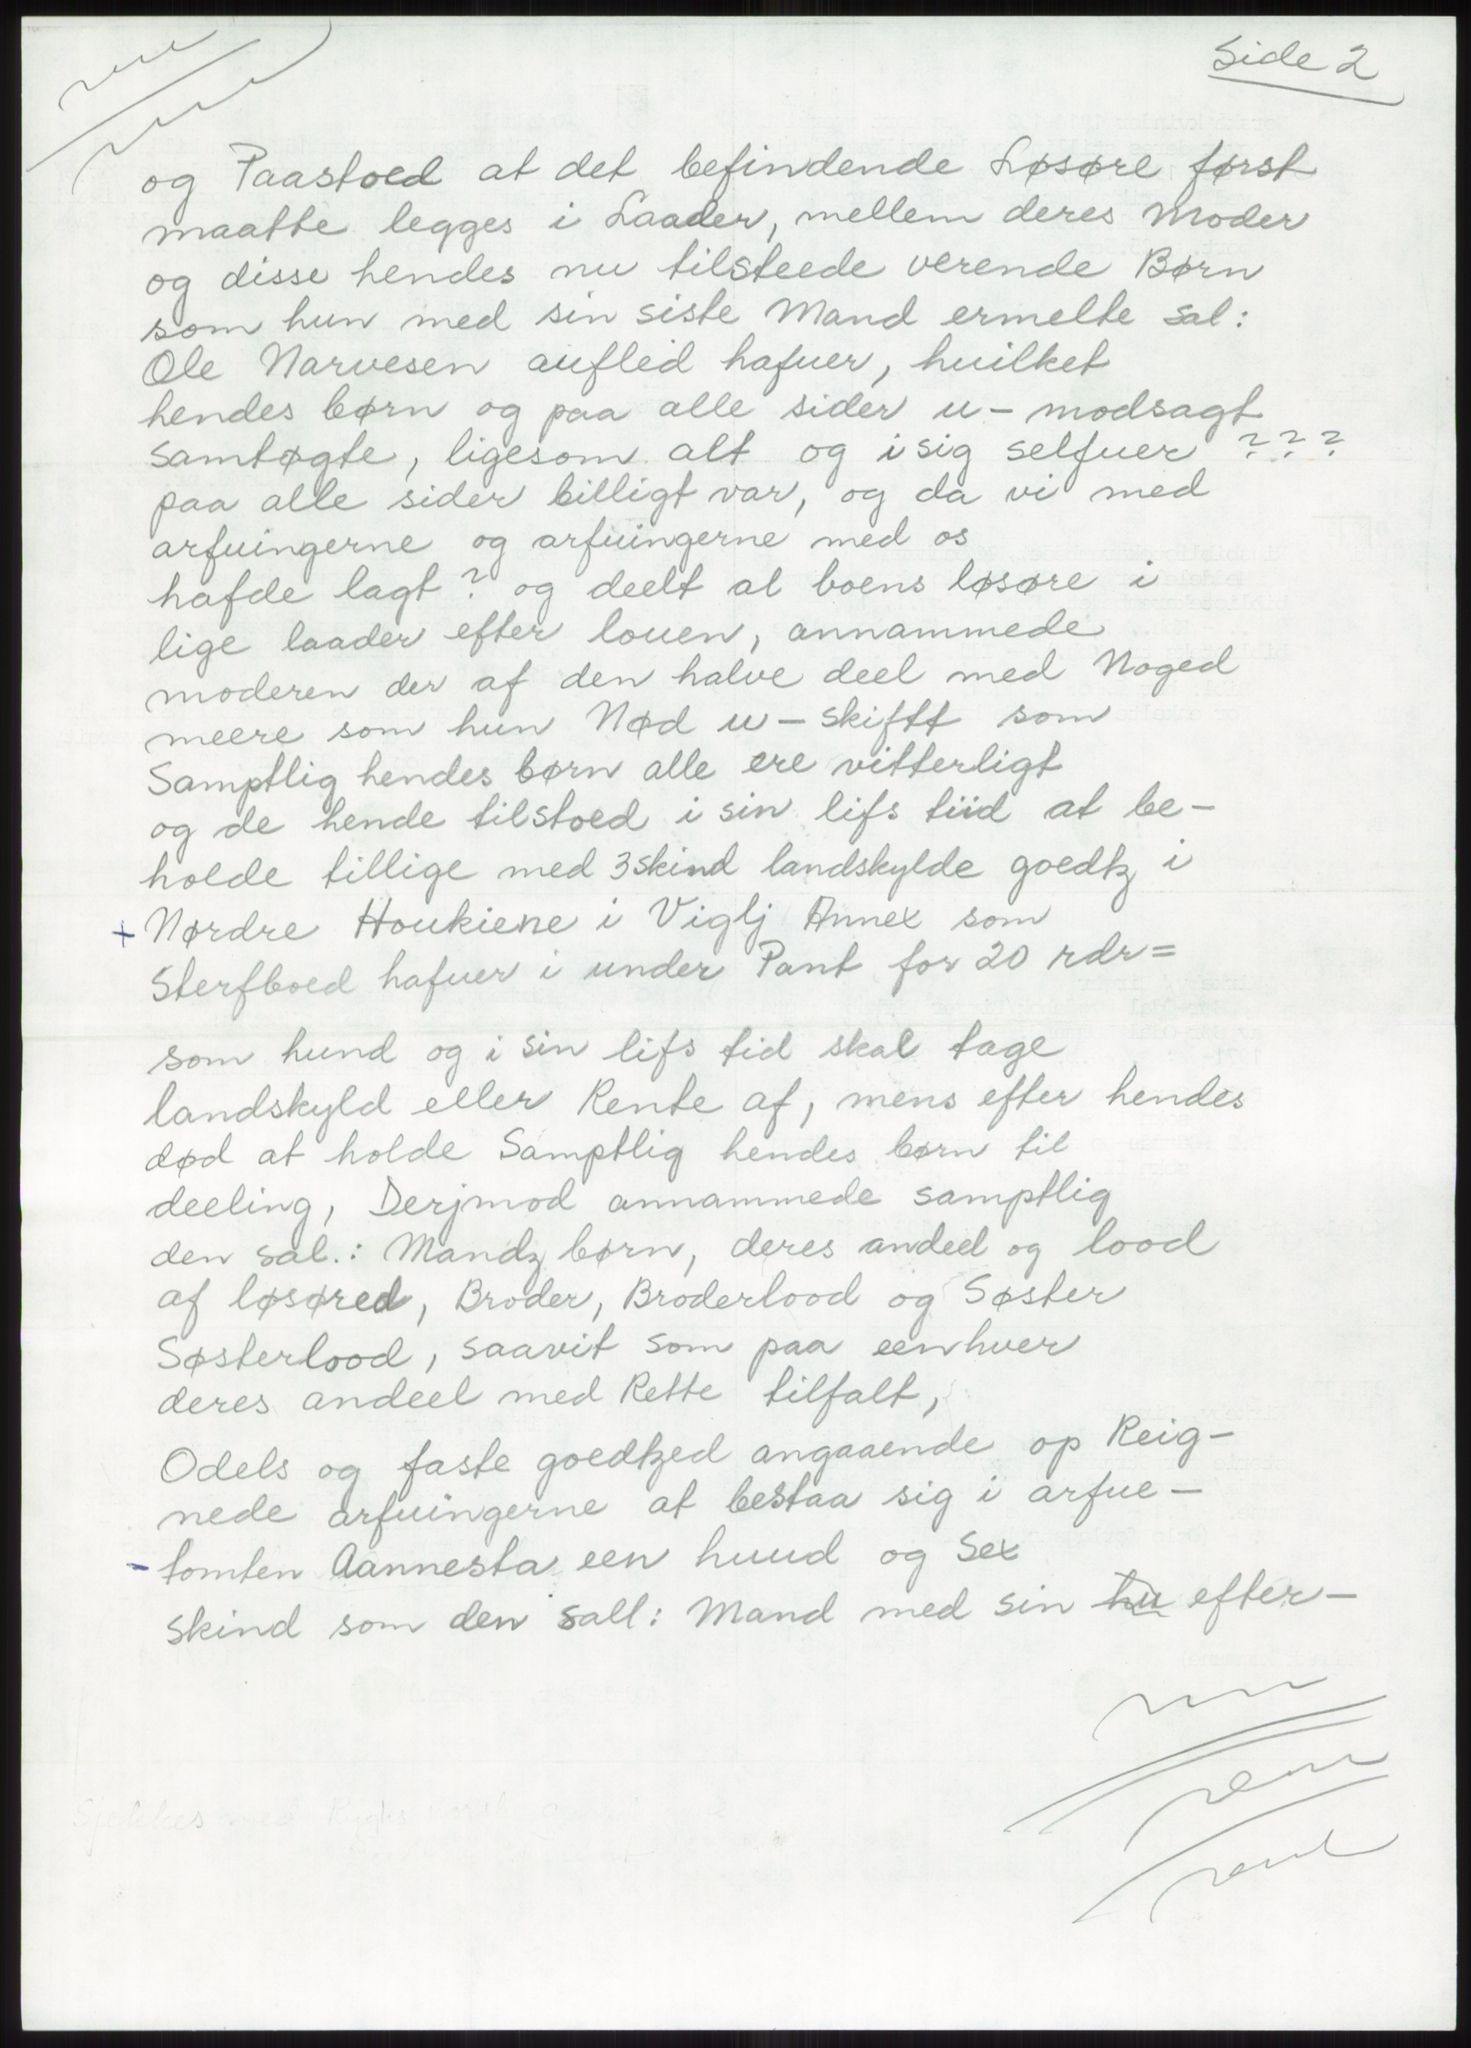 Side 2
og Paastoed at det befindende Løsøre først
maatte legges i Laader, mellem deres Moder
og disse hendes nu tilsteede verende Børn
som hun med sin siste Mand ermelte sal:
Ole Narvesen aufled hafuer, huilket
hendes børn og paa alle sider u-modsagt
samtøgte, ligesom alt og i sig selfuer ???
paa alle sider billigt var, og da vi med
arfuingerne og arfuingerne med os
hafde lagt? og deelt al boens løsøre i
lige laader efter louen, annammede
moderen der af den halve deel med Noged
meere som hun Nød u-skiftt som
Samptlig hendes børn alle ere vitterligt
og de hende tilstoed i sin lifs tiid at be-
holde tillige med 3 skind landskylde goedtz i
+ Nørdre Houkiene i Viglj Annex som
Sterfboed hafuer i under Pant for 20 rdr=
som hund og i sin lifs tid skal tage
landskyld eller Rente af, mens efter hendes
død at holde Samptlig hendes børn til
deeling, Derjmod annammede samptlig
den sal.: Mandz børn, deres andeel og lood
af løsøred, Broder, Broderlood og Søster
Søsterlood, saavit som paa eenhver
deres andeel med Rette tilfalt,
Odels og faste goedtzed angaaende op Reig-
nede arfuingerne at bestaa sig i arfue-
- tomten Aannesta een huud og Sex
skind som den sall: Mand med sin hu efter-